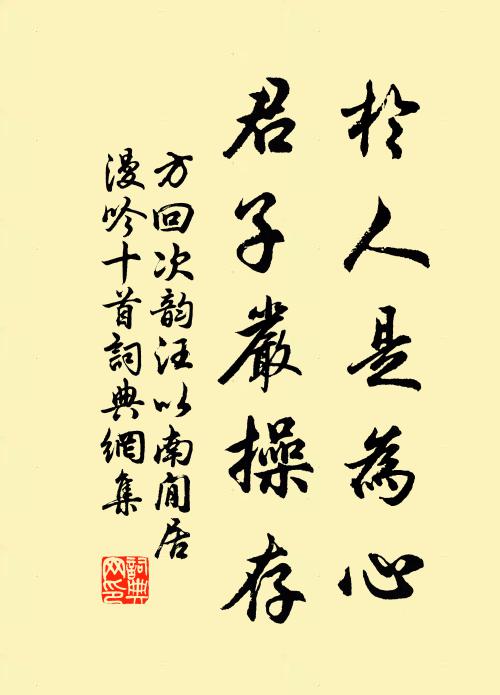 於人是為心
君子嚴操存
方回次韵汪以南閒居
漫吟十首詞典網集
詞典
网印